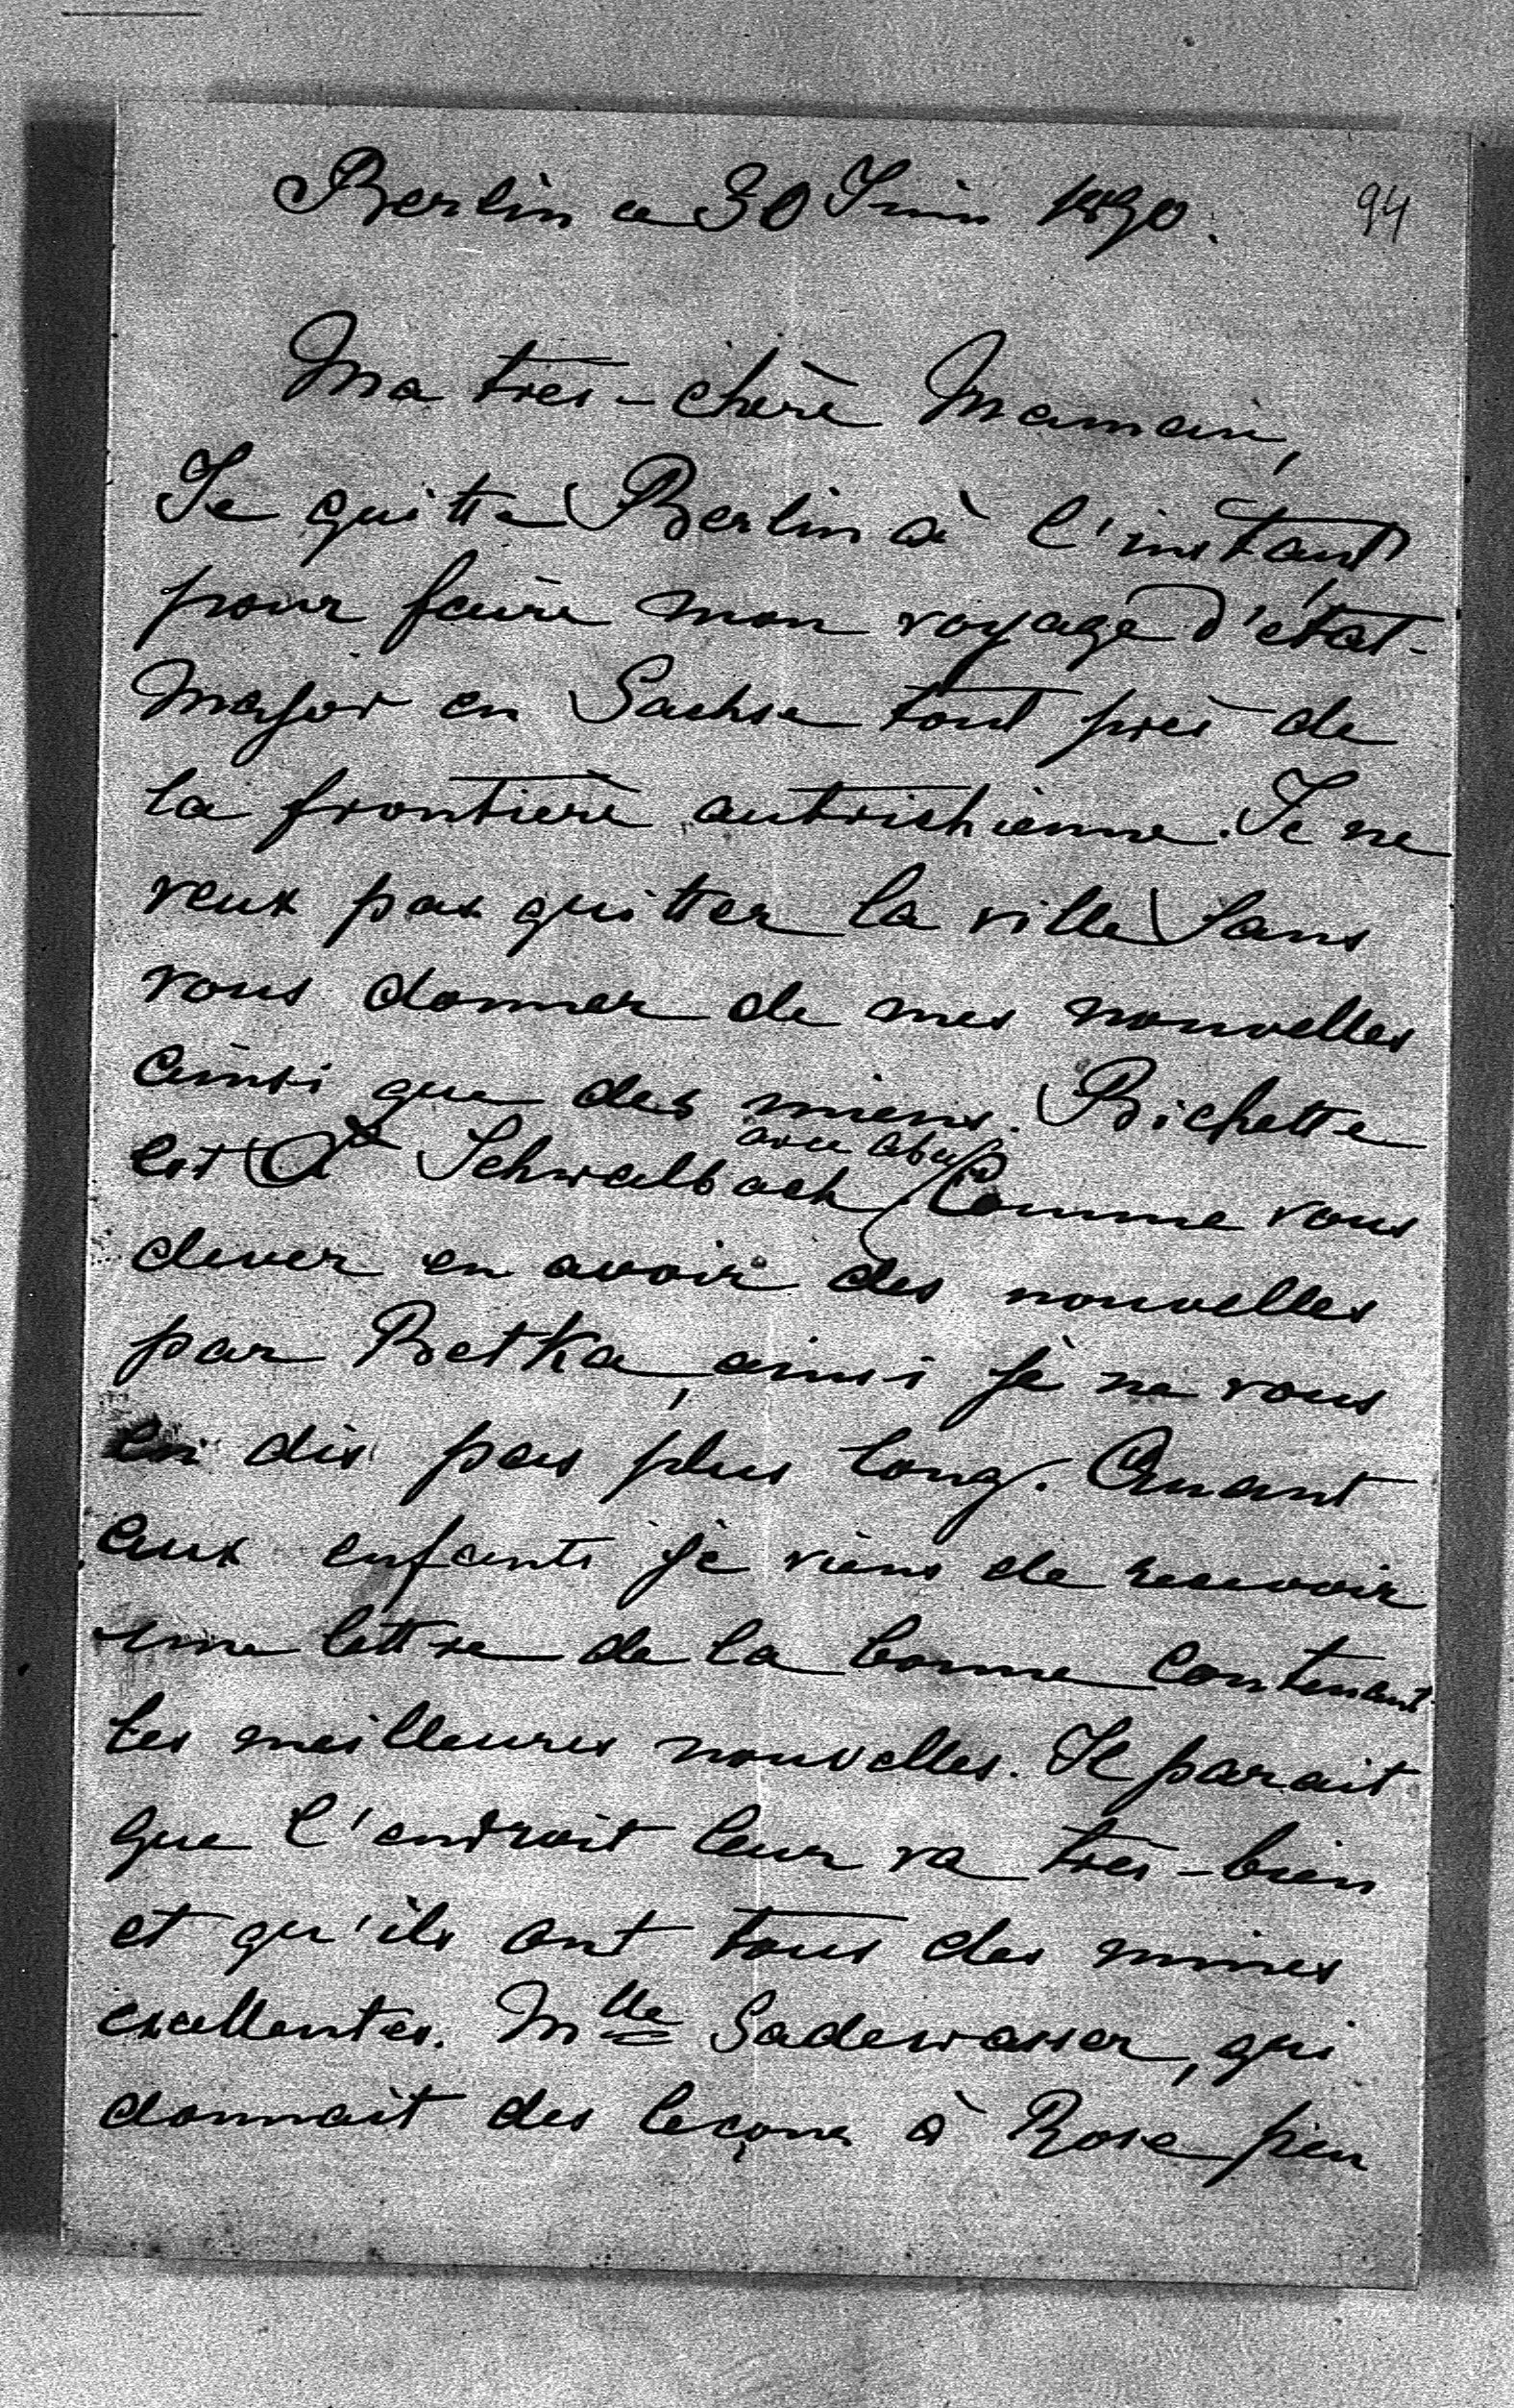 Berlin ce 30 Juin 1890.
94
Ma très-chère Maman,
Je quitte Berlin à l'instant
pour faire mon voyage d'état-
major en Sachse tout près de
la frontière autrichienne. Je ne
veux pas quitter la ville sans
vous donner de mes nouvelles
ainsi que des miens. Bichette
est à Schwalbach avec
Comme vous
devez en avoir des nouvelles
par Betka, ainsi je ne vous
en dis pas plus long. Quant
aux enfants je viens de recevoir
une lettre de la bonne contenant
les meilleures nouvelles. Il parait
que l'endroit leur va très-bien
et qu'ils ont tous des mines
excellentes. Mlle Sadewasser, qui
donnait des leçons à Rose pen